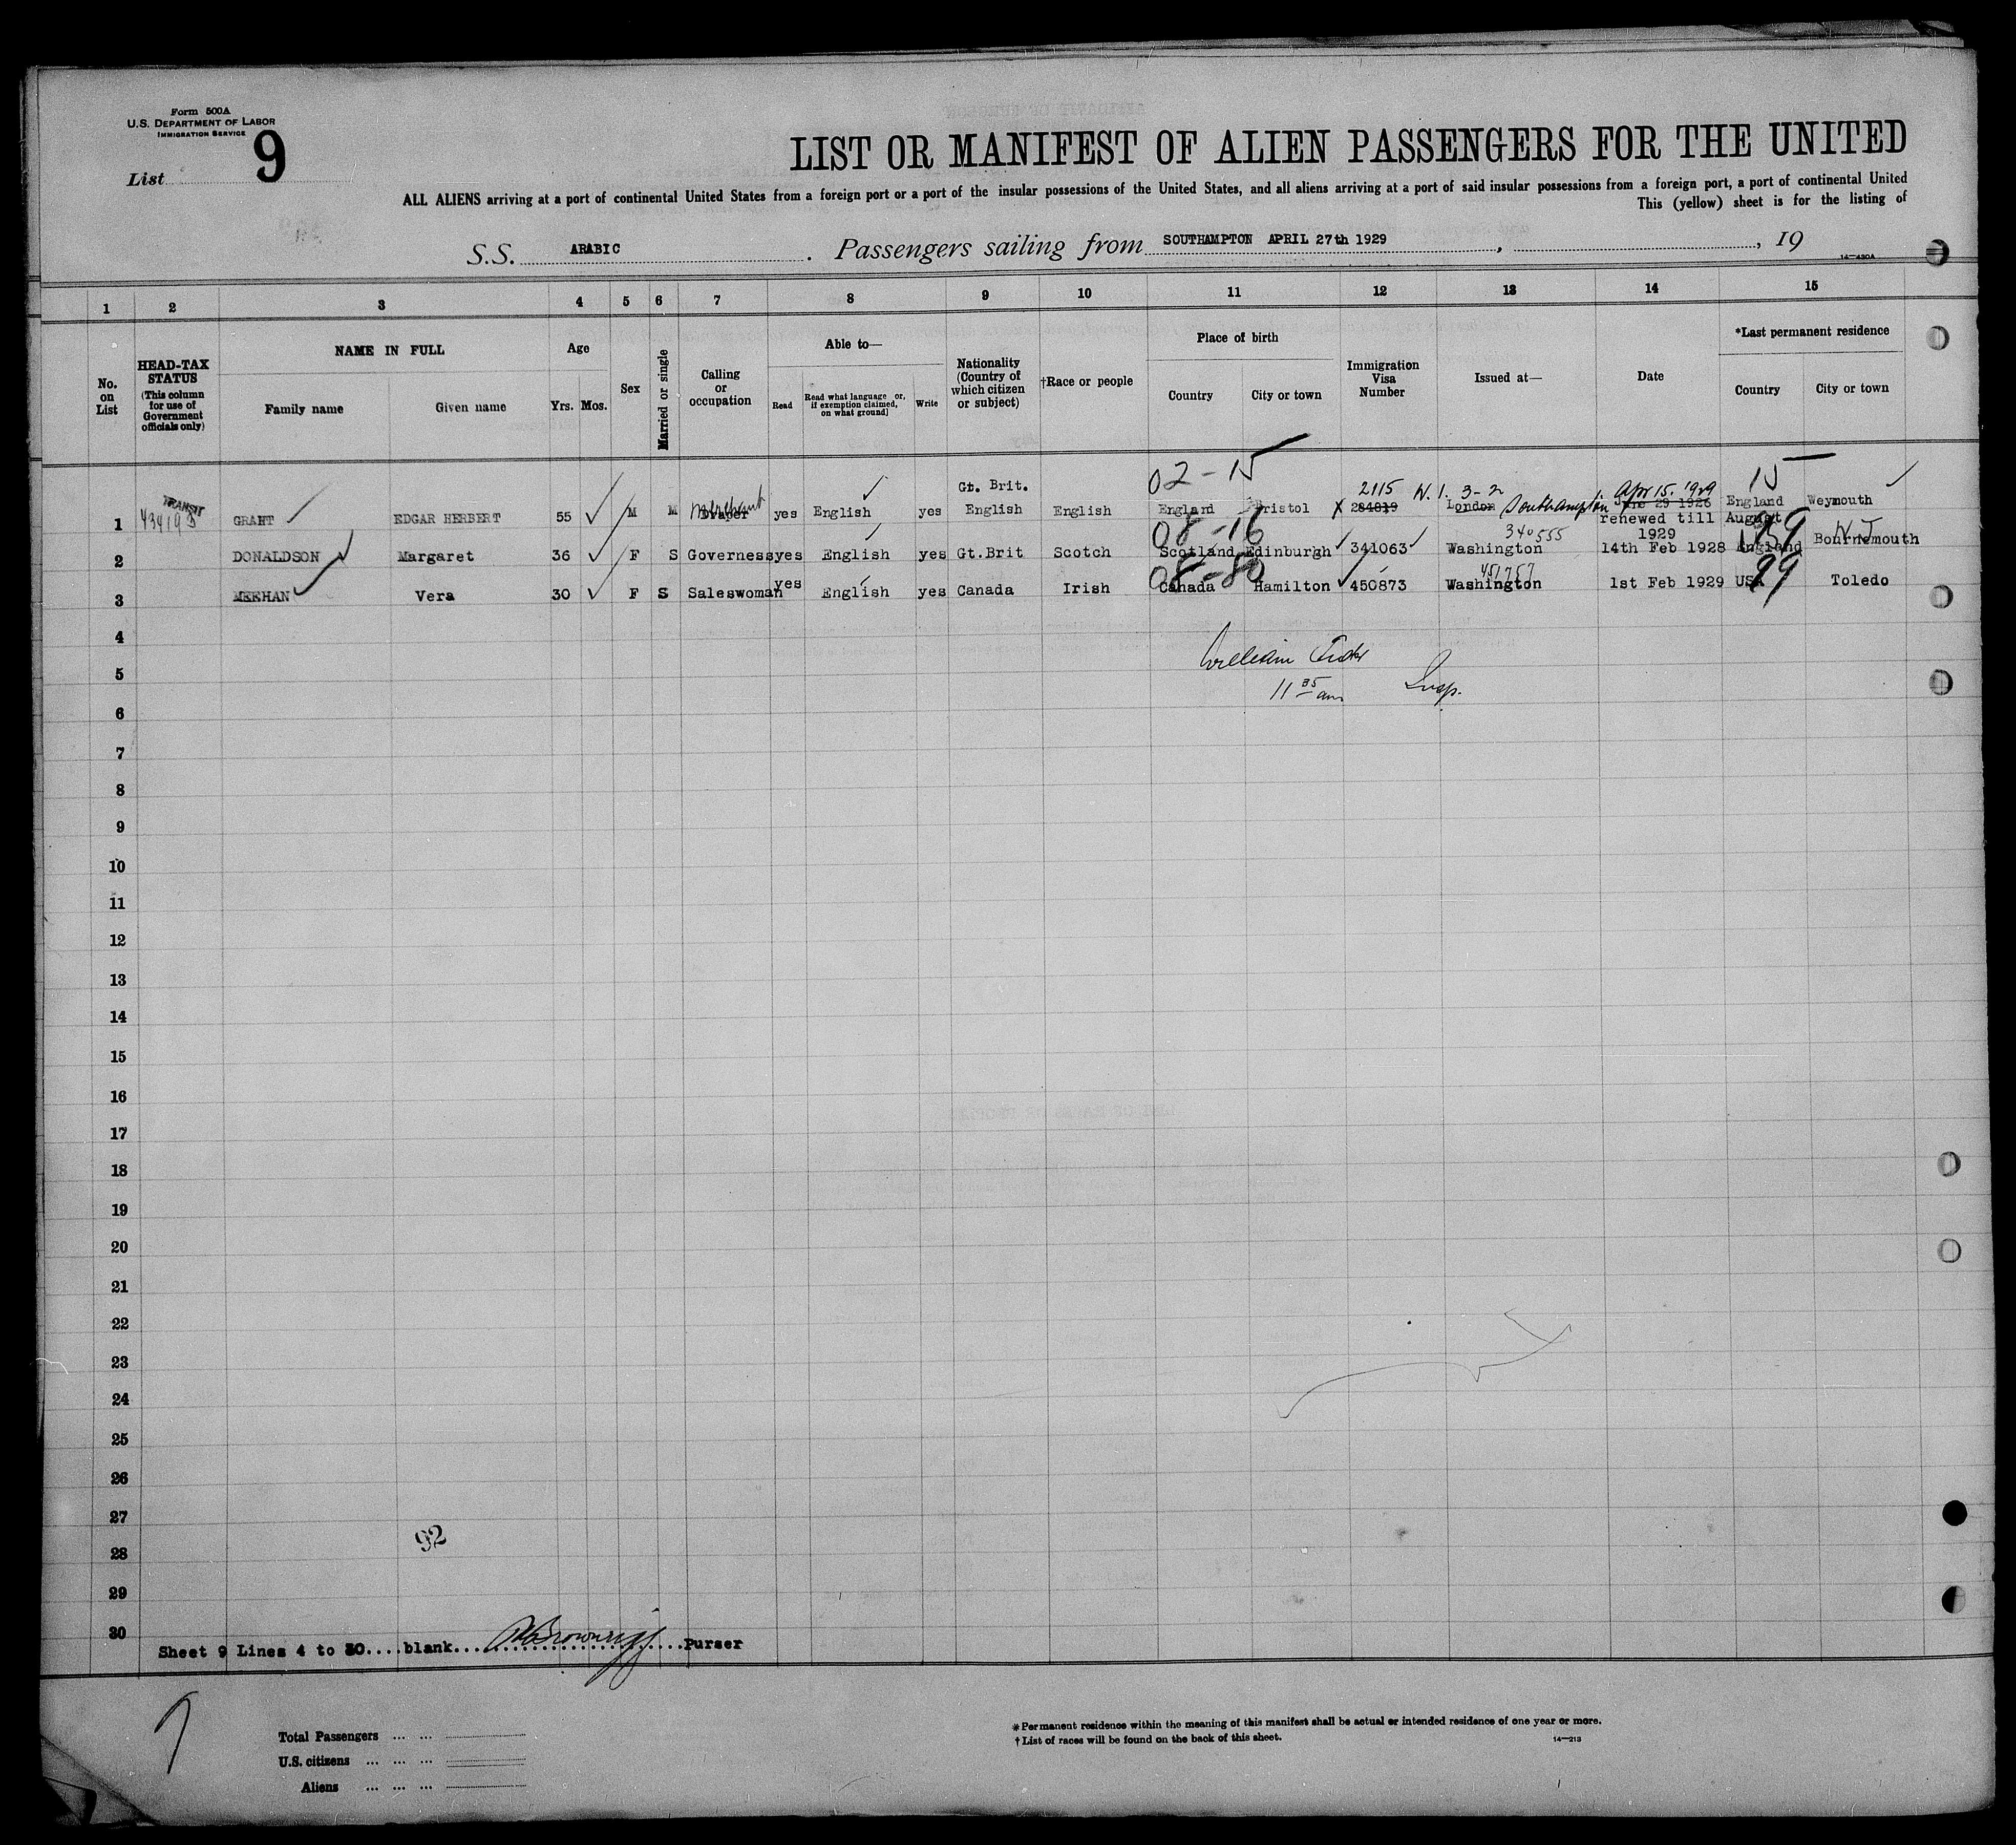 Form 500A
U.S. DEPARTMENT OF LABOR
IMMIGRATION SERVICE
List 9
LIST OR MANIFEST OF ALIEN PASSENGERS FOR THE UNITED
ALL ALIENS arriving at a port of continental United States from a foreign port or a port of the insular possessions of the United States, and all aliens arriving at a port of said insular possessions from a foreign port, a port of continental United
This (yellow) sheet is for the listing of
S.S. ARABIC . Passengers sailing from SOUTHAMPTON APRIL 27th 1929 , , 19
14—430A
1 2 3 4 5 6 7 8 9 10 11 12 13 14 15
No. on List
HEAD-TAX STATUS
(This column for use of Government officials only)
NAME IN FULL
Family name Given name
Age
Yrs. Mos.
Sex
Married or single
Calling or occupation
Able to—
Read Read what language [or, if exemption claimed, on what ground] Write
Nationality (Country of which citizen or subject)
†Race or people
Place of birth
Country City or town
Immigration Visa Number
Issued at—
Date
*Last permanent residence
Country City or town
02-15 15
TRANSIT merchant Gt. Brit. 2115 W.1. 3-2 Southampton Apr 15. 1929
1 GRANT EDGAR HERBERT 55 M M Draper yes English yes English English England Bristol X 284819 London June 29 1926 England Weymouth
renewed till August 1929
08-16 340555 99
2 DONALDSON Margaret 36 F S Governess yes English yes Gt.Brit Scotch Scotland Edinburgh 341063 Washington 14th Feb 1928 England Bournemouth
08-80 451757 99
3 MEEHAN Vera 30 F S Saleswoman yes English yes Canada Irish Canada Hamilton 450873 Washington 1st Feb 1929 USA Toledo
4
William
5
11 35 am Insp.
6
7
8
9
10
11
12
13
14
15
16
17
18
19
20
21
22
23
24
25
26
27
92
28
29
30
Sheet 9 Lines 4 to 30....blank.... Brownrigg ....Purser
Total Passengers ... ...
U.S. citizens ... ... ...
Aliens ... ... ...
*Permanent residence within the meaning of this manifest shall be actual or intended residence of one year or more.
†List of races will be found on the back of this sheet.
14—213